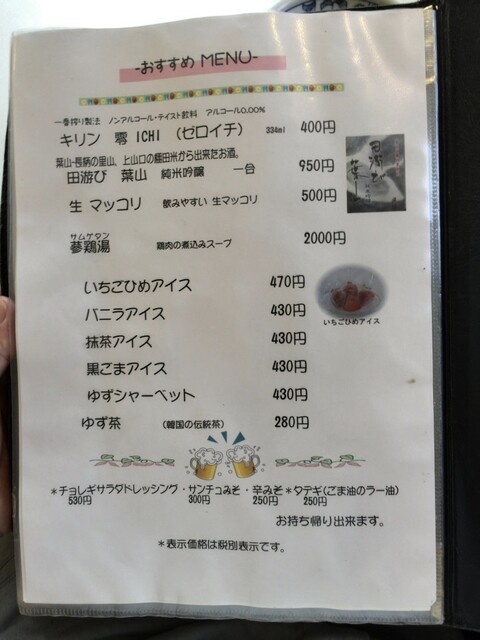 -おすすめ MENU-
一番搾り製法 ノンアルコール・テイスト飲料 アルコール0.00%
キリン 零 ICHI (ゼロイチ) 334ml 400円
葉山・長柄の里山、上山口の棚田米から出来たお酒。
田遊び 葉山 純米吟醸 一合 950円
生 マッコリ 飲みやすい 生マッコリ 500円
サムゲタン
蔘鶏湯 鶏肉の煮込みスープ 2000円
いちごひめアイス 470円
バニラアイス 430円
いちごひめアイス
抹茶アイス 430円
黒ごまアイス 430円
ゆずシャーベット 430円
ゆず茶 (韓国の伝統茶) 280円
*チョレギサラダドレッシング・サンチュみそ・辛みそ*タテギ(ごま油のラー油)
530円 300円 250円 250円
お持ち帰り出来ます。
*表示価格は税別表示です。